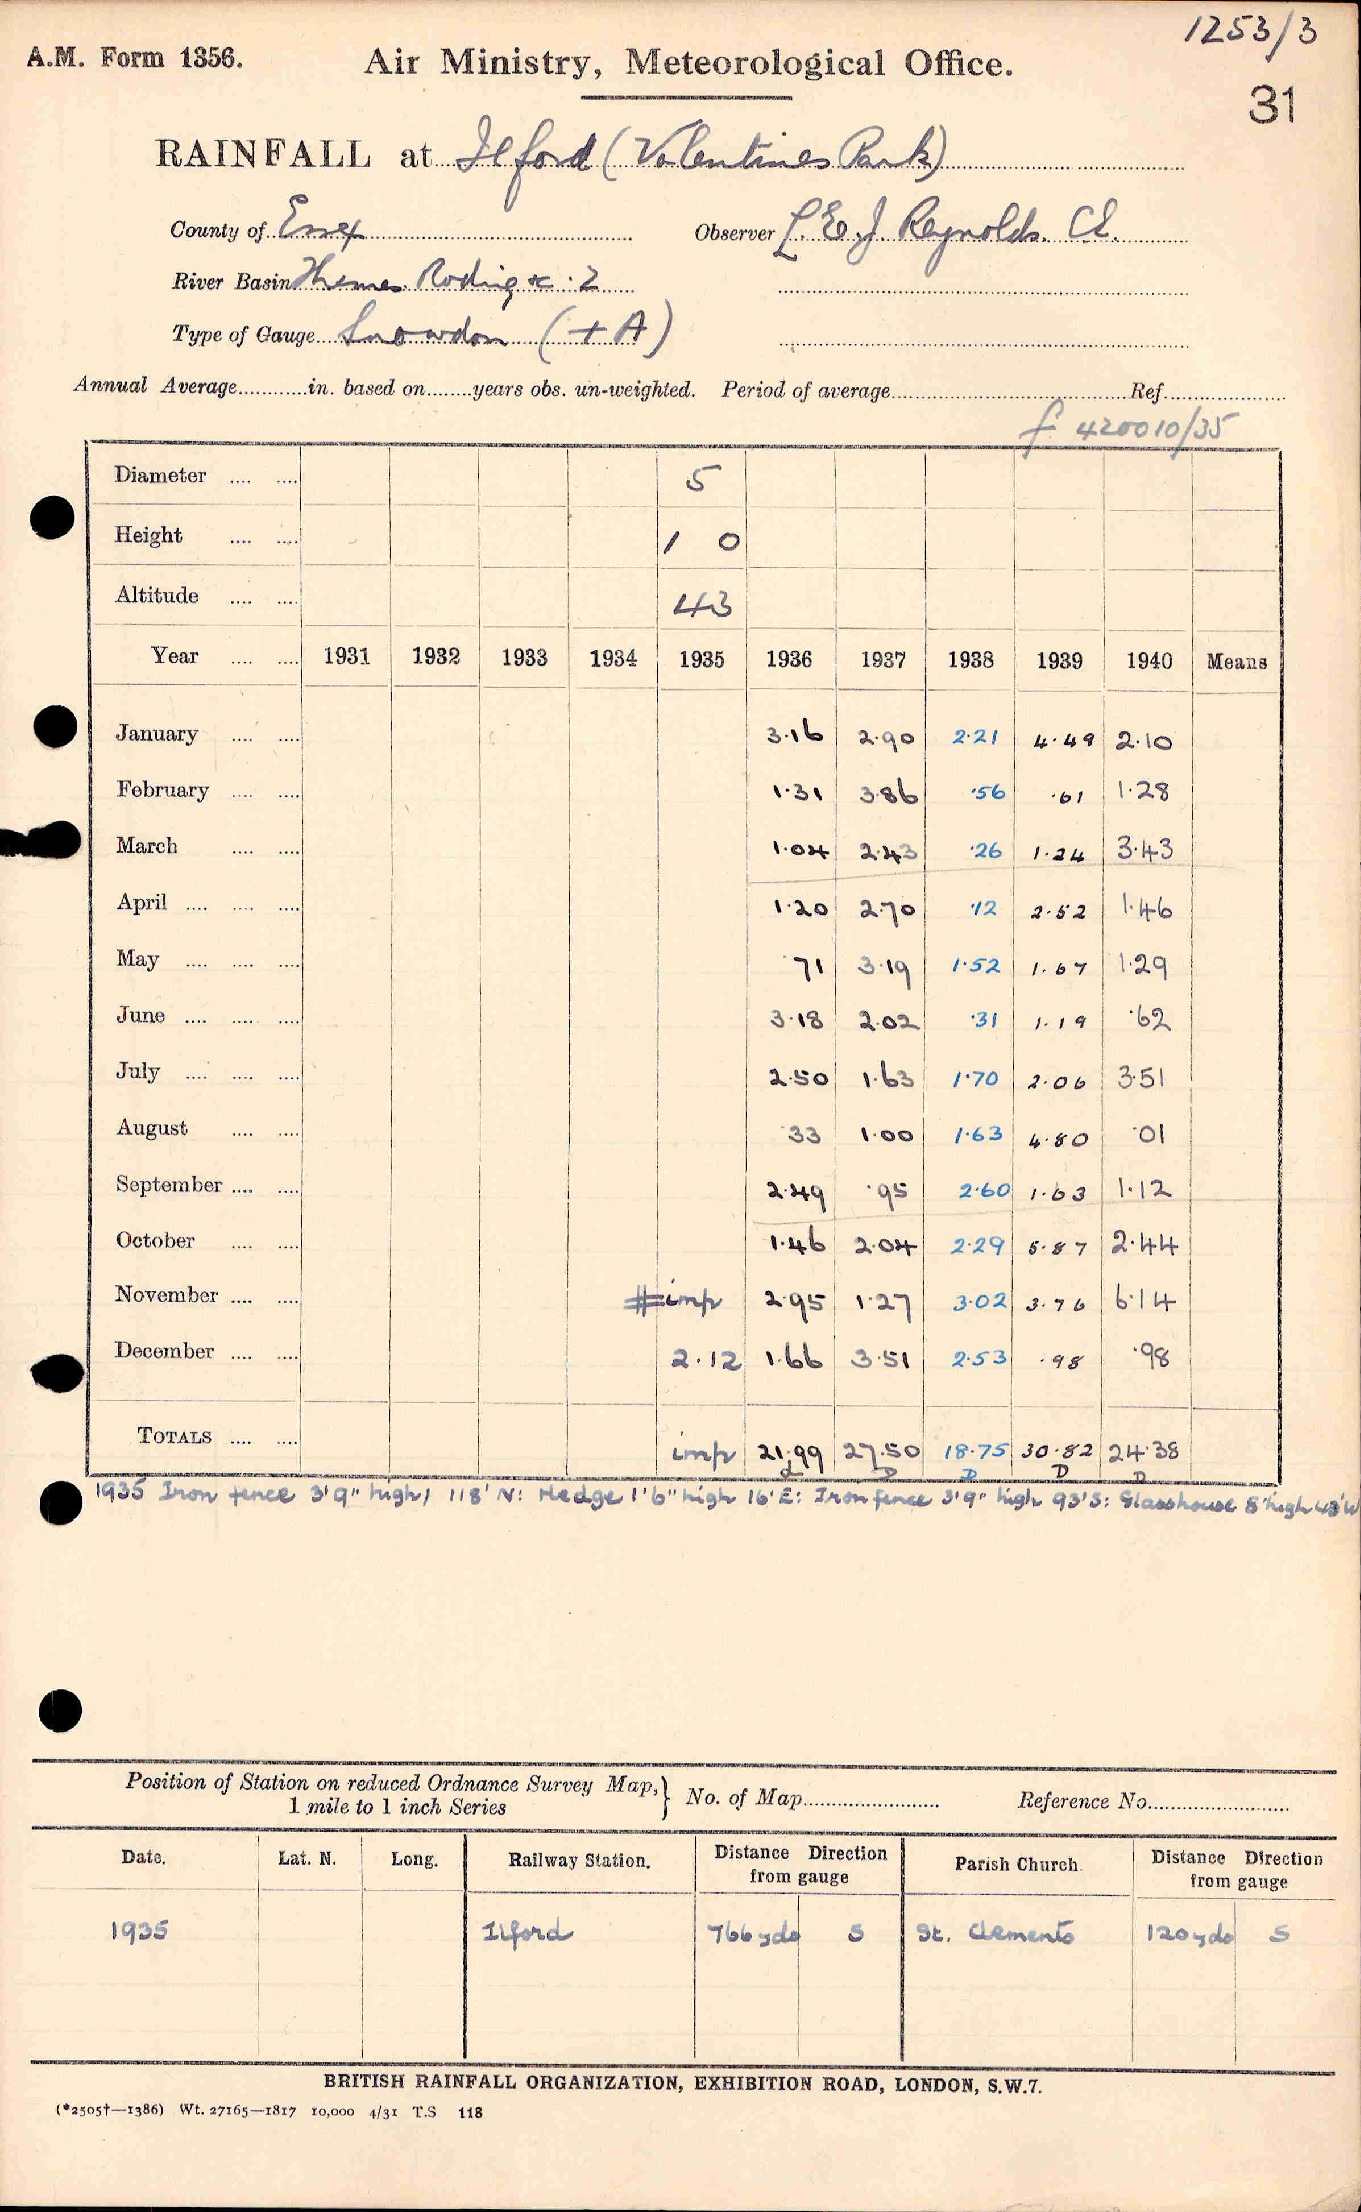 1253/3
A.M. Form 1356. Air Ministry, Meteorological Office.
31
RAINFALL at Ilford (Valentines Park)
County of Essex Observer L. E. J. Reynolds. C.E.
River Basin Thames Roding &c. 2
Type of Gauge Snowdon (+A)
Annual Average............in. based on........years obs. un-weighted. Period of average............Ref............
f 420010/35
Diameter .... .... 5
Height .... .... 1 0
Altitude .... .... 43
Year .... .... 1931 1932 1933 1934 1935 1936 1937 1938 1939 1940 Means
January .... .... 3.16 2.90 2.21 4.49 2.10
February .... .... 1.31 3.86 .56 .61 1.28
March .... .... 1.04 2.43 .26 1.24 3.43
April .... .... .... 1.20 2.70 .12 2.52 1.46
May .... .... .... .71 3.19 1.52 1.67 1.29
June .... .... .... 3.18 2.02 .31 1.19 .62
July .... .... .... 2.50 1.63 1.70 2.06 3.51
August .... .... .33 1.00 1.63 4.80 .01
September .... .... 2.49 .95 2.60 1.63 1.12
October .... .... 1.46 2.04 2.29 5.87 2.44
November .... .... # imp 2.95 1.27 3.02 3.76 6.14
December .... .... 2.12 1.66 3.51 2.53 .98 .98
TOTALS .... .... imp 21.99 27.50 18.75 30.82 24.38
D D D D
1935 Iron fence 3'9" high, 118' N: Hedge 1'6" high 16' E: Iron fence 3'9" high 93' S: Glasshouse 8' high 43' W
Position of Station on reduced Ordnance Survey Map, } No. of Map............ Reference No............
1 mile to 1 inch Series
Date. Lat. N. Long. Railway Station. Distance from gauge Direction Parish Church. Distance from gauge Direction
1935 Ilford 766 yds S St. Clements 120 yds S
BRITISH RAINFALL ORGANIZATION, EXHIBITION ROAD, LONDON, S.W.7.
(*2505†—1386) Wt. 27165—1817 10,000 4/31 T.S 118